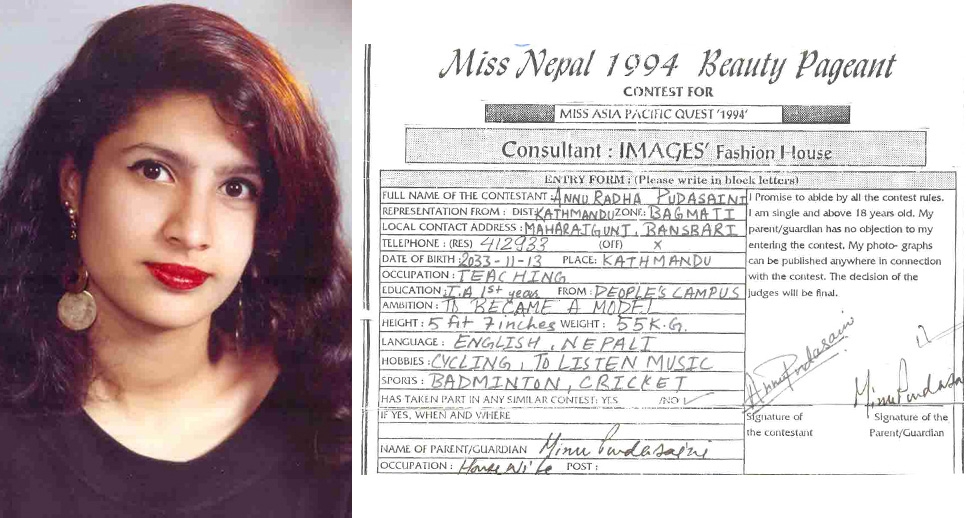 Miss Nepal 1994 Beauty Pageant
CONTEST FOR
MISS ASIA PACIFIC QUEST '1994'
Consultant : IMAGES' Fashion House
ENTRY FORM : (Please write in block letters)
FULL NAME OF THE CONTESTANT : ANNU RADHA PUDASAINI
REPRESENTATION FROM : DIST: KATHMANDU ZONE: BAGMATI
LOCAL CONTACT ADDRESS : MAHARAJGUNJ, BANSBARI
TELEPHONE : (RES) 412933 (OFF) X
DATE OF BIRTH : 2033-11-13 PLACE: KATHMANDU
OCCUPATION : TEACHING
EDUCATION : I.A 1st year FROM : PEOPLE'S CAMPUS
AMBITION : TO BECAME A MODEL
HEIGHT : 5 fit 7 inches WEIGHT : 55 K.G.
LANGUAGE : ENGLISH, NEPALI
HOBBIES : CYCLING, TO LISTEN MUSIC
SPORTS : BADMINTON, CRICKET
HAS TAKEN PART IN ANY SIMILAR CONTEST: YES /NO ✓
IF YES, WHEN AND WHERE
NAME OF PARENT/GUARDIAN Minu Pudasaini
OCCUPATION : House Wife POST :
I Promise to abide by all the contest rules.
I am single and above 18 years old. My
parent/guardian has no objection to my
entering the contest. My photo- graphs
can be published anywhere in connection
with the contest. The decision of the
judges will be final.
Annu Pudasaini
Signature of
the contestant
Minu Pudasai
Signature of the
Parent/Guardian